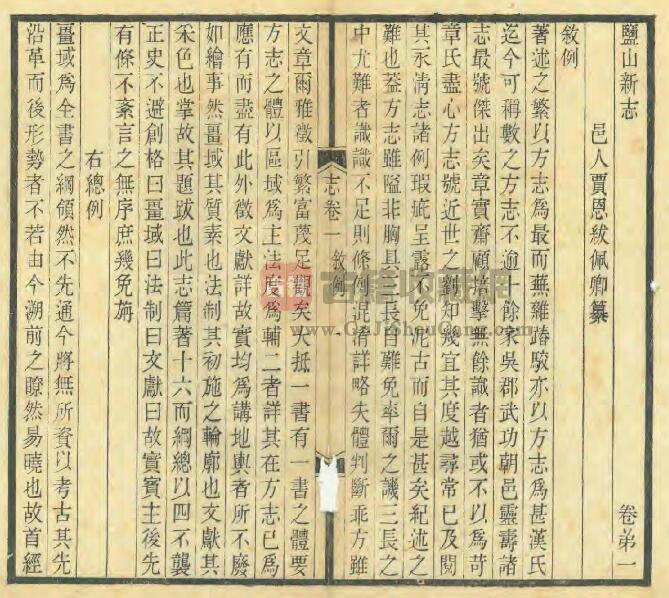 鹽山新志 卷弟一
邑人賈恩紱佩卿纂
敘例
著述之繁以方志爲最而蕪雜踳駮亦以方志爲甚漢氏
迄今可稱數之方志不逾十餘家吳郡武功朝邑靈壽諸
志最號傑出矣章實齋顧掊擊無餘識者猶或不以爲苛
章氏盡心方志號近世之劉知幾宜其度越尋常已及閱
其永淸志諸例瑕疵呈露不免泥古而自是甚矣紀述之
難也蓋方志雖隘非胸具三長自難免率爾之譏三長之
中尤難者識識不足則條例混淆詳略失體判斷乖方雖
志卷一 敘例 一
文章爾雅徵引繁富蔑足觀矣大抵一書有一書之體要
方志之體以區域爲主法度爲輔二者詳其在方志已爲
應有而盡有此外徵文獻詳故實均爲講地輿者所不廢
如繪事然畺域其質素也法制其初施之輪廓也文獻其
采色也掌故其題跋也此志篇著十六而綱總以四不襲
正史不避創格曰畺域曰法制曰文獻曰故實賓主後先
有條不紊言之無序庶幾免旃
右總例
畺域爲全書之綱領然不先通今將無所資以考古其先
沿革而後形勢者不若由今溯前之瞭然易曉也故首經
古籍收藏网
www.GuJiShouCang.com